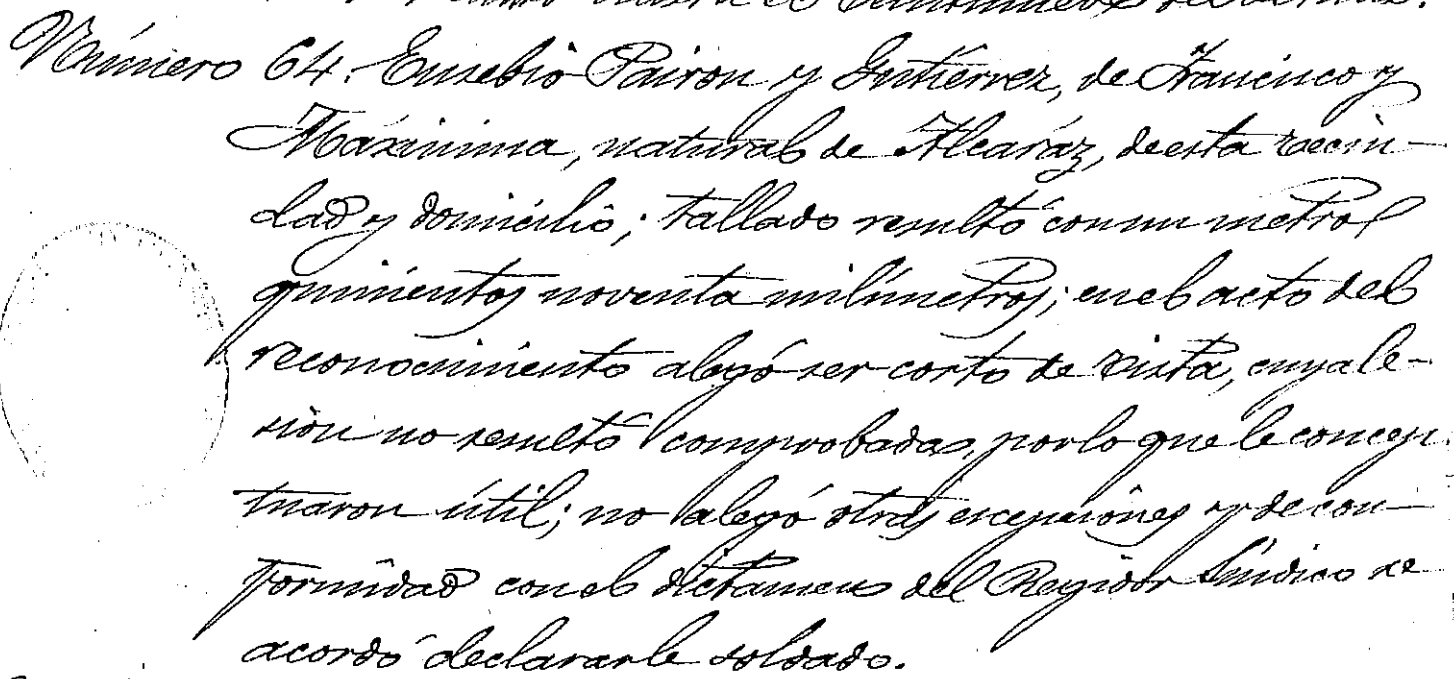 Número 64. Eusebio Pairon y Gutiérrez, de Francisco y
Máximina, natural de Alcaráz, de esta vecin-
dad y domicilio; tallado resultó con un metro
quinientos noventa milímetros; en el acto del
reconocimiento alegó ser corto de vista, cuya le-
sión no resultó comprobada, por lo que le concep-
tuaron útil; no alegó otras excepciones y de con-
formidad con el dictamen del Regidor Síndico se
acordó declararle soldado.